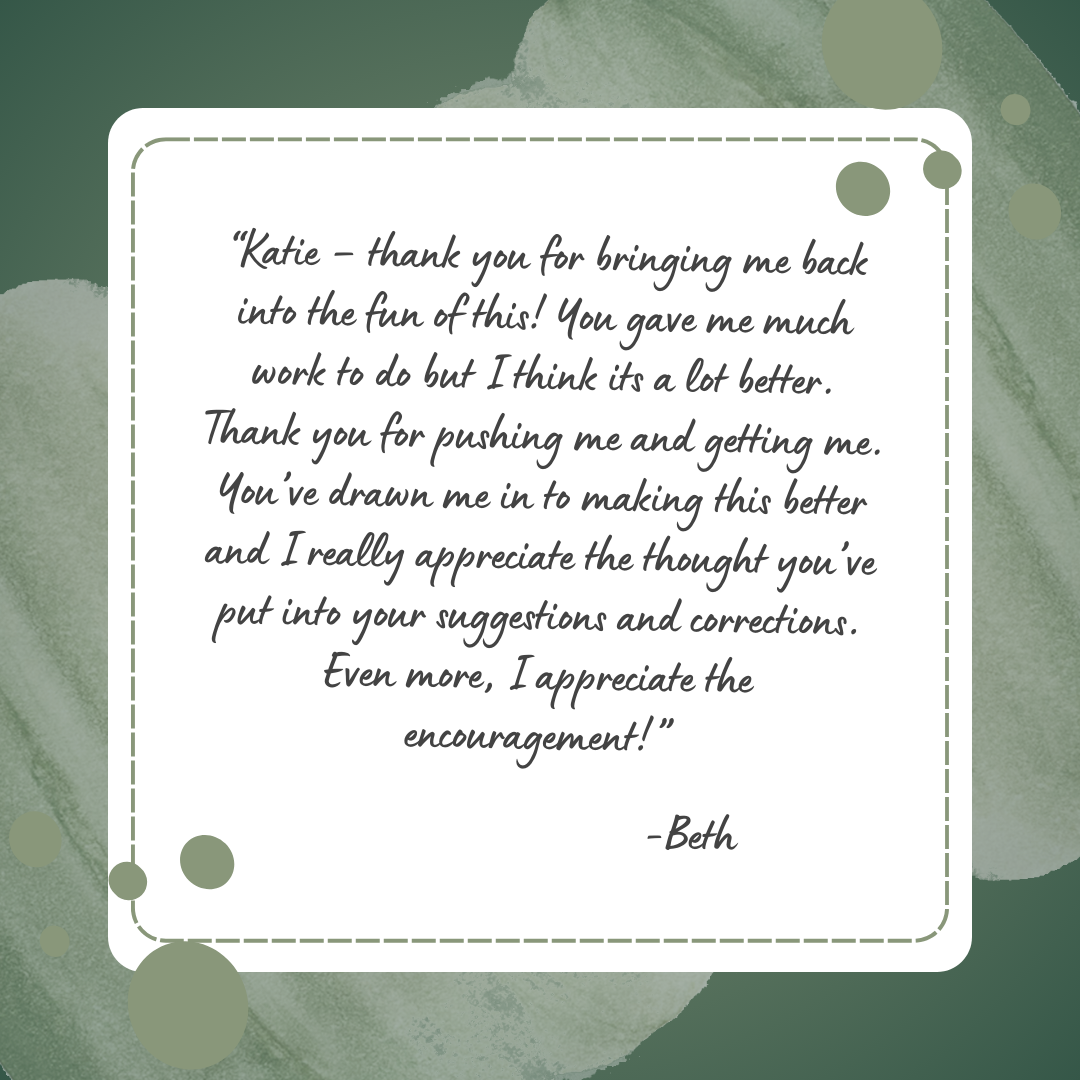 “Katie – thank you for bringing me back
into the fun of this! You gave me much
work to do but I think its a lot better.
Thank you for pushing me and getting me.
You’ve drawn me in to making this better
and I really appreciate the thought you’ve
put into your suggestions and corrections.
Even more, I appreciate the
encouragement!”
-Beth